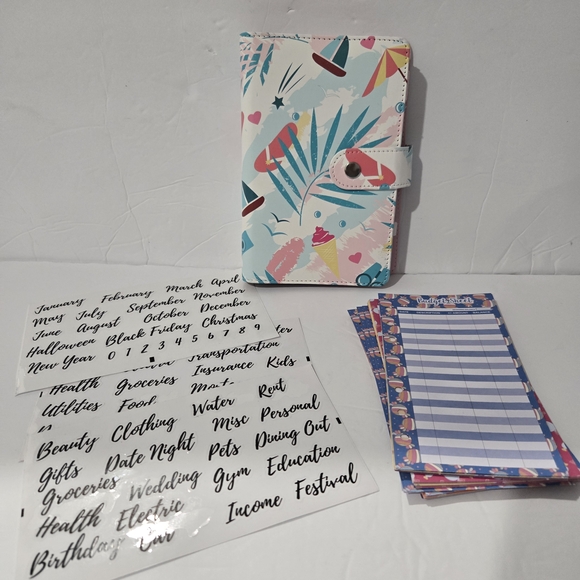 January February March April
May July September November
June August October December
Halloween Black Friday Christmas
New Year 0 1 2 3 4 5 6 7 8 9
Transportation
Health Groceries Insurance Kids
Utilities Food
Beauty Clothing Water Rent
Gifts Date Night Misc Personal
Groceries Wedding Pets Dining Out
Health Electric Gym Education
Birthdays Car Income Festival
Budget Sheet